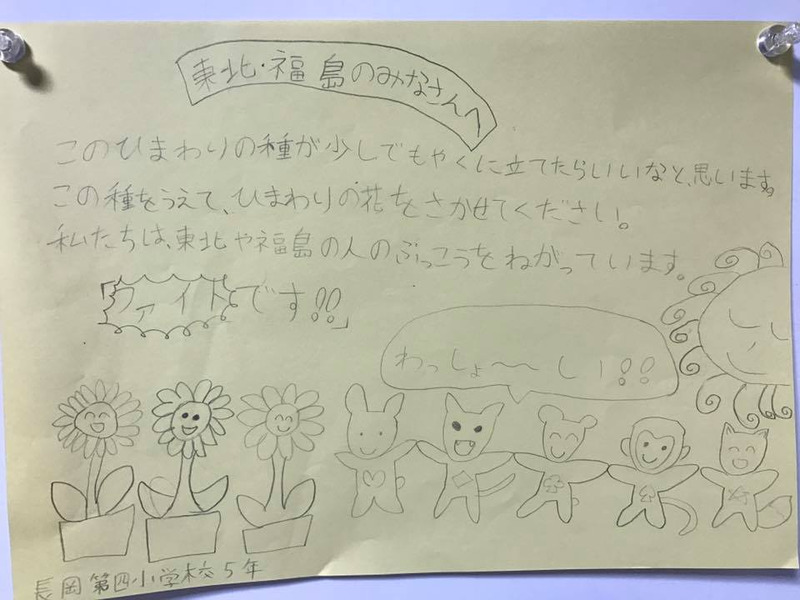 東北・福島のみなさんへ
このひまわりの種が少しでもやくに立てたらいいなと、思います。
この種をうえて、ひまわりの花をさかせてください。
私たちは、東北や福島の人のぶっこうをねがっています。
「ファイトです!!」
わっしょ〜〜しい!!
長岡第四小学校5年